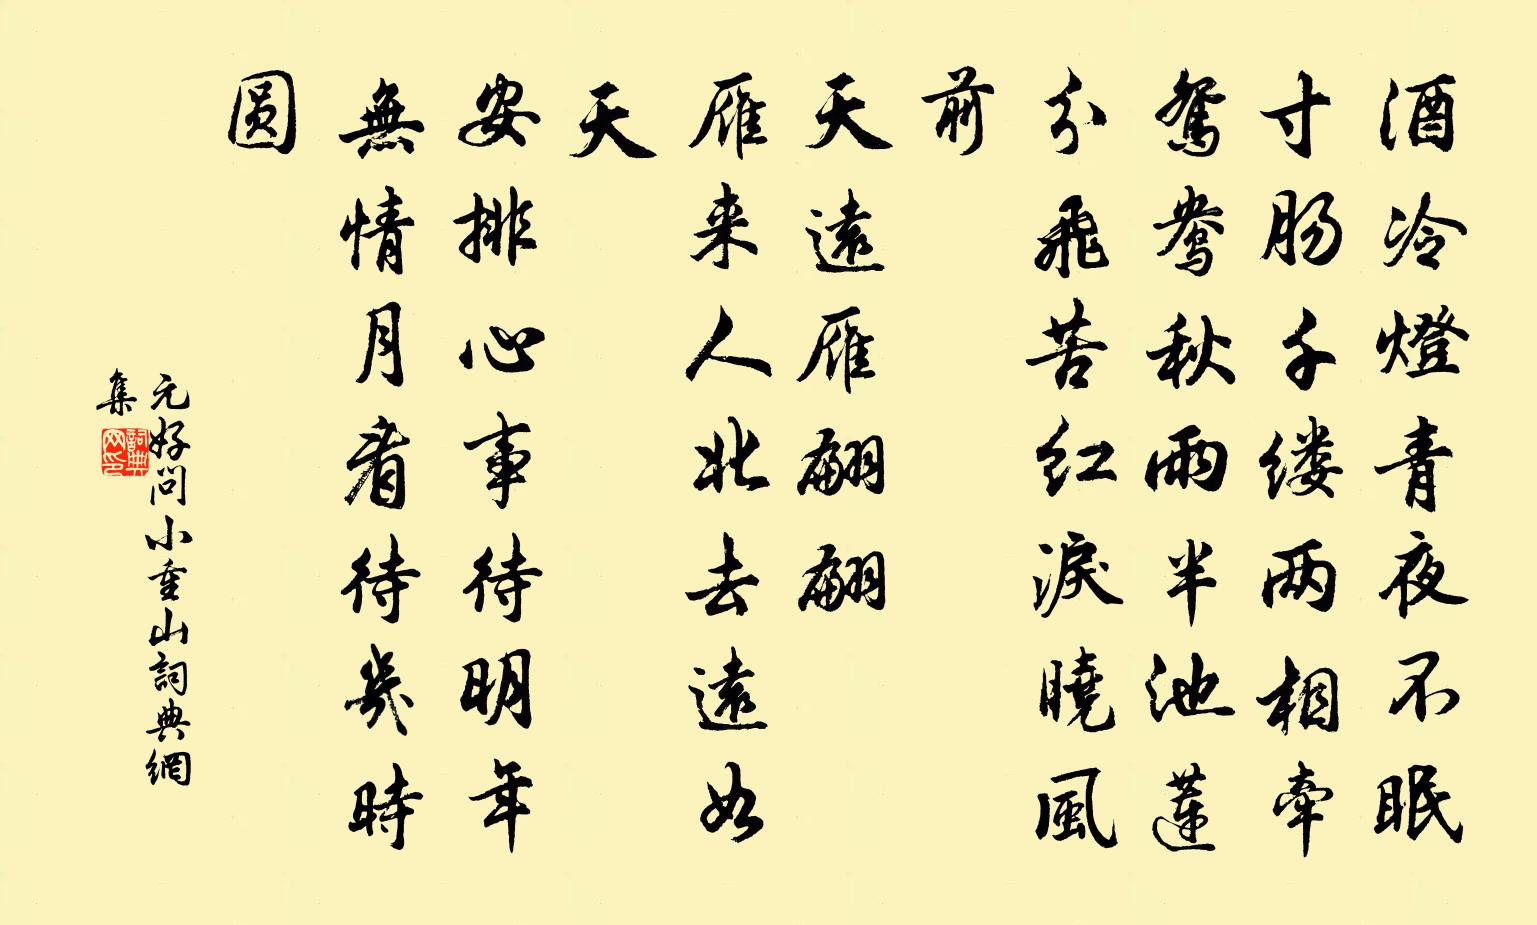 酒冷燈青夜不眠
寸肠千缕两相牽
鴛鴦秋雨半池蓮
分飛苦红淚曉風
前
天遠雁翩翩
雁来人北去遠如
天
安排心事待明年
無情月看待幾時
圆
元好問小重山詞典網
集
詞典網印